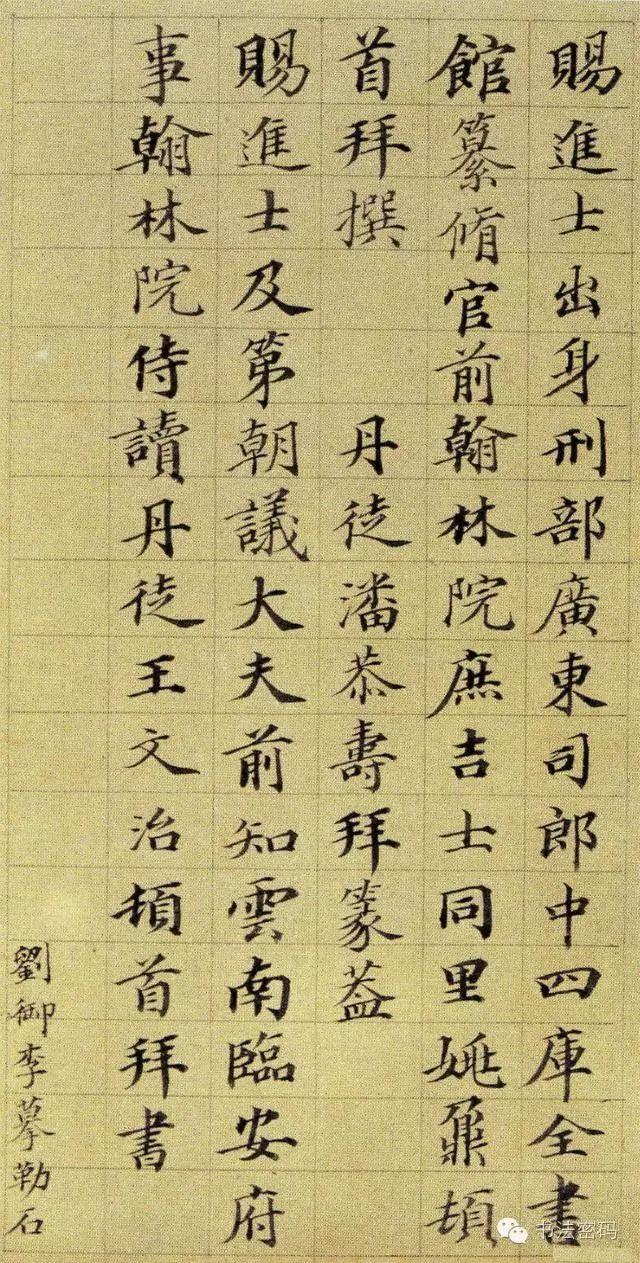 賜進士出身刑部廣東司郎中四庫全書
館纂脩官前翰林院庶吉士同里姚鼐頓
首拜撰 丹徒潘恭壽拜篆蓋
賜進士及第朝議大夫前知雲南臨安府
事翰林院侍讀丹徒王文治頓首拜書
劉御李摹勒石
书法密码